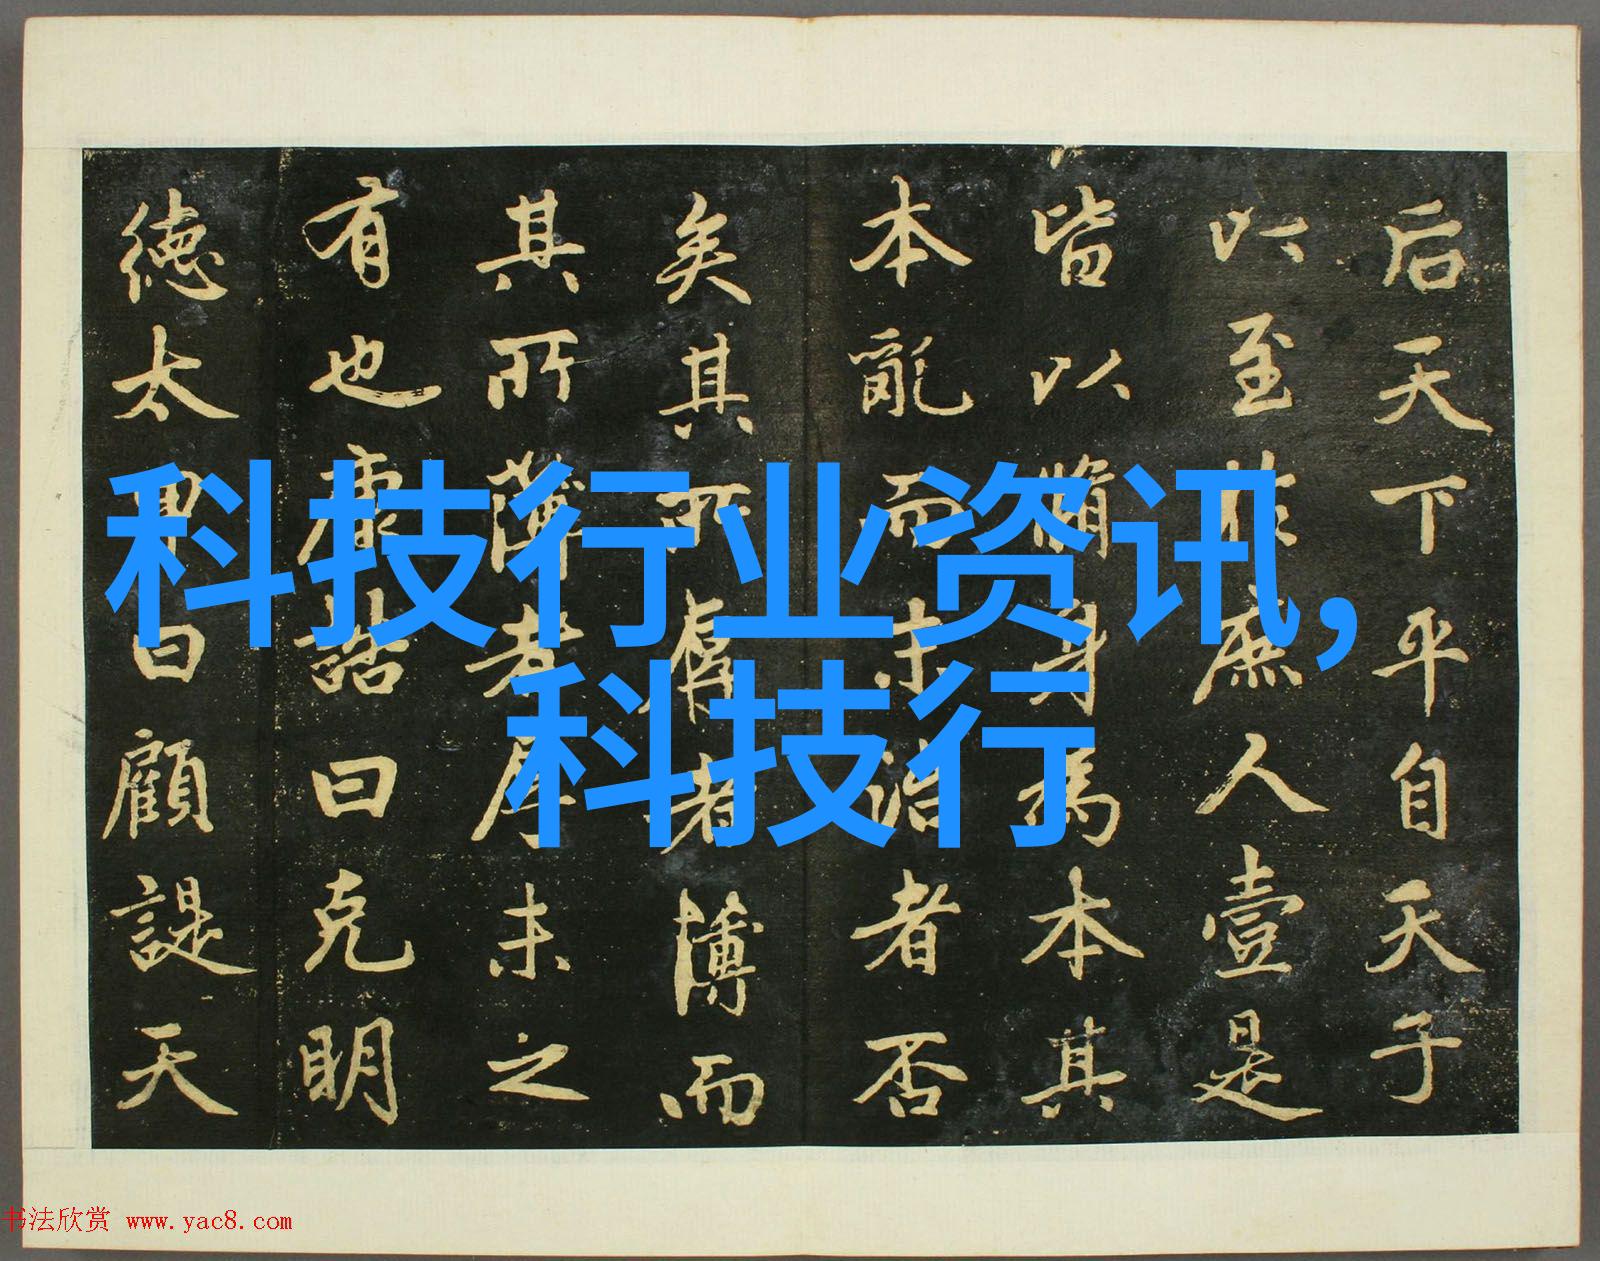 后天下平自天子
以至於庶人壹是
皆以脩身為本其
本亂而末治者否
矣其所厚者薄而
其所薄者厚未之
有也康誥曰克明
德太甲曰顧諟天
科技行业资讯,
科技行
书法欣赏 www.yac8.com